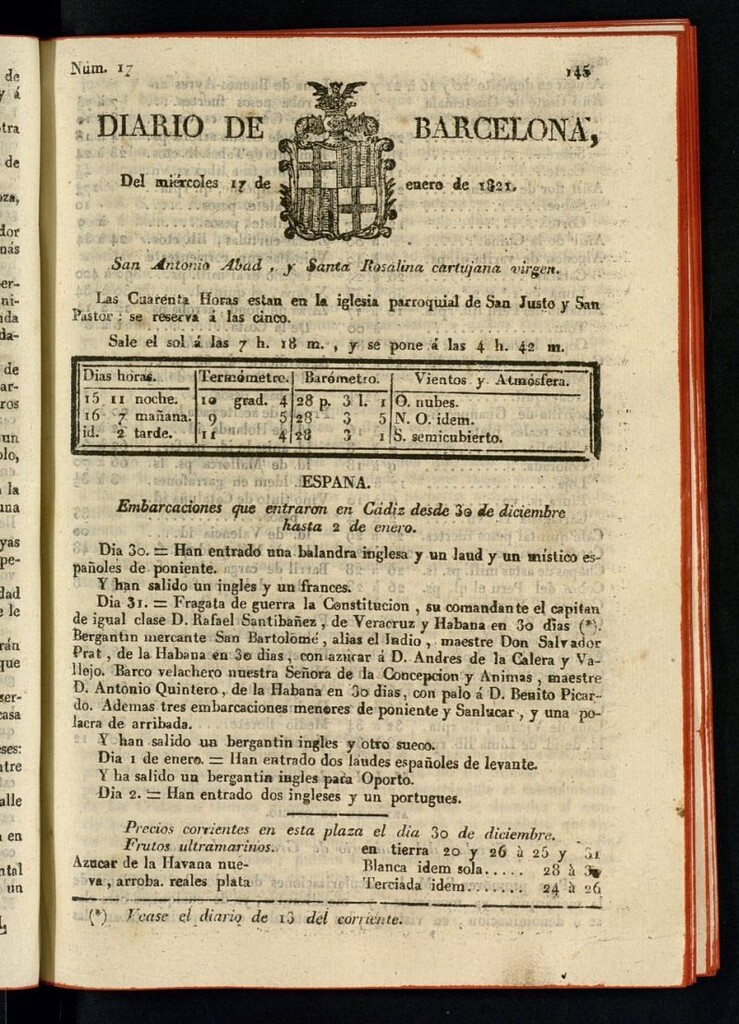 de
y á
tra
de
oza,
dor
más
per-
ni-
ida
da-
de
ar-
ros
un
olo,
la
una
yas
pe-
dad
e le
rán
que
ser-
casa
ses:
tre
alle
en
ntal
un
Núm. 17 145
DIARIO DE BARCELONA,
Del miércoles 17 de enero de 1821.
San Antonio Abad, y Santa Rosalina cartujana virgen.
Las Cuarenta Horas estan en la iglesia parroquial de San Justo y San
Pastor: se reserva á las cinco.
Sale el sol á las 7 h. 18 m., y se pone á las 4 h. 42 m.
Dias horas. Termómetro. Barómetro. Vientos y Atmósfera.
15 11 noche. 10 grad. 4 28 p. 3 l. 1 O. nubes.
16 7 mañana. 9 5 28 3 5 N. O. idem.
id. 2 tarde. 11 4 28 3 1 S. semicubierto.
ESPAÑA.
Embarcaciones que entraron en Cádiz desde 30 de diciembre
hasta 2 de enero.
Dia 30. = Han entrado una balandra inglesa y un laud y un místico es-
pañoles de poniente.
Y han salido un ingles y un frances.
Dia 31. = Fragata de guerra la Constitucion, su comandante el capitan
de igual clase D. Rafael Santibañez, de Veracruz y Habana en 30 dias (*).
Bergantin mercante San Bartolomé, alias el Indio, maestre Don Salvador
Prat, de la Habana en 30 dias, con azúcar á D. Andres de la Calera y Va-
llejo. Barco velachero nuestra Señora de la Concepcion y Animas, maestre
D. Antonio Quintero, de la Habana en 30 dias, con palo á D. Benito Picar-
do. Ademas tres embarcaciones menores de poniente y Sanlucar, y una po-
lacra de arribada.
Y han salido un bergantin ingles y otro sueco.
Dia 1 de enero. = Han entrado dos laudes españoles de levante.
Y ha salido un bergantin ingles para Oporto.
Dia 2. = Han entrado dos ingleses y un portugues.
Precios corrientes en esta plaza el dia 30 de diciembre.
Frutos ultramarinos. en tierra 20 y 26 á 25 y 31
Azucar de la Havana nue- Blanca idem sola..... 28 á
va, arroba. reales plata Terciada idem....... 24 á 26
(*) Vease el diario de 13 del corriente.